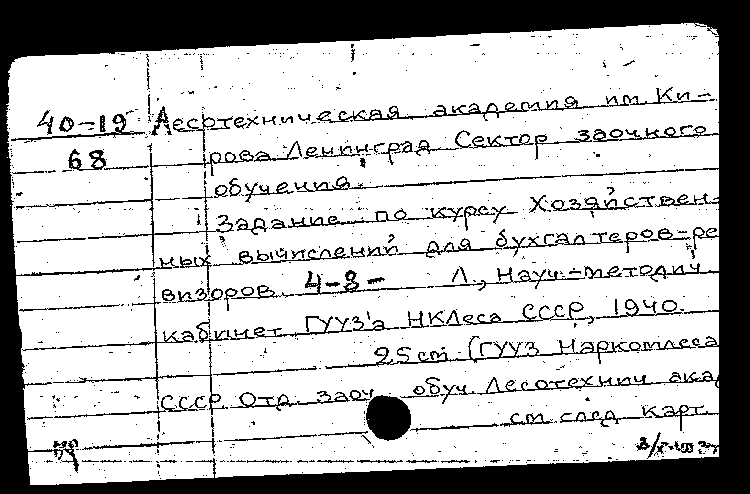 40-19 Лесотехническая академия им. Ки-
68 рова Ленинград Сектор заочного
обучения.
Задание по курсу Хозяйствен-
ных вычислений для бухгалтеров-ре
визоров. 4-3- Л., Науч.-методич.
кабинет ГУУЗ'а НКЛеса СССР, 1940.
25 cm (ГУУЗ Наркомлеса
СССР. Отд. заоч. обуч. Лесотехнич ака
см. след карт.